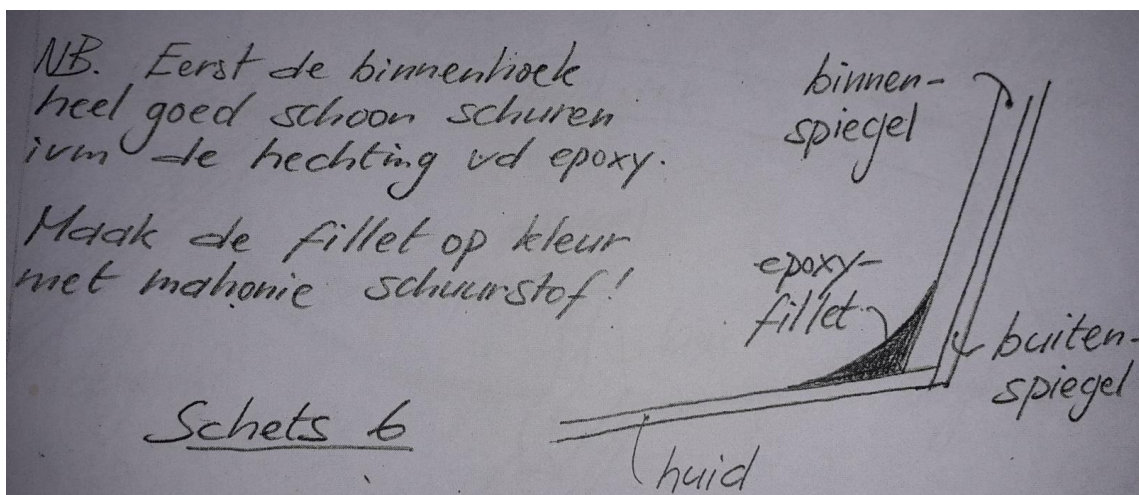 NB. Eerst de binnenhoek
heel goed schoon schuren
ivm de hechting vd epoxy.
Maak de fillet op kleur
met mahonie schuurstof!
Schets 6
binnen-
spiegel
epoxy-
fillet
buiten-
spiegel
huid